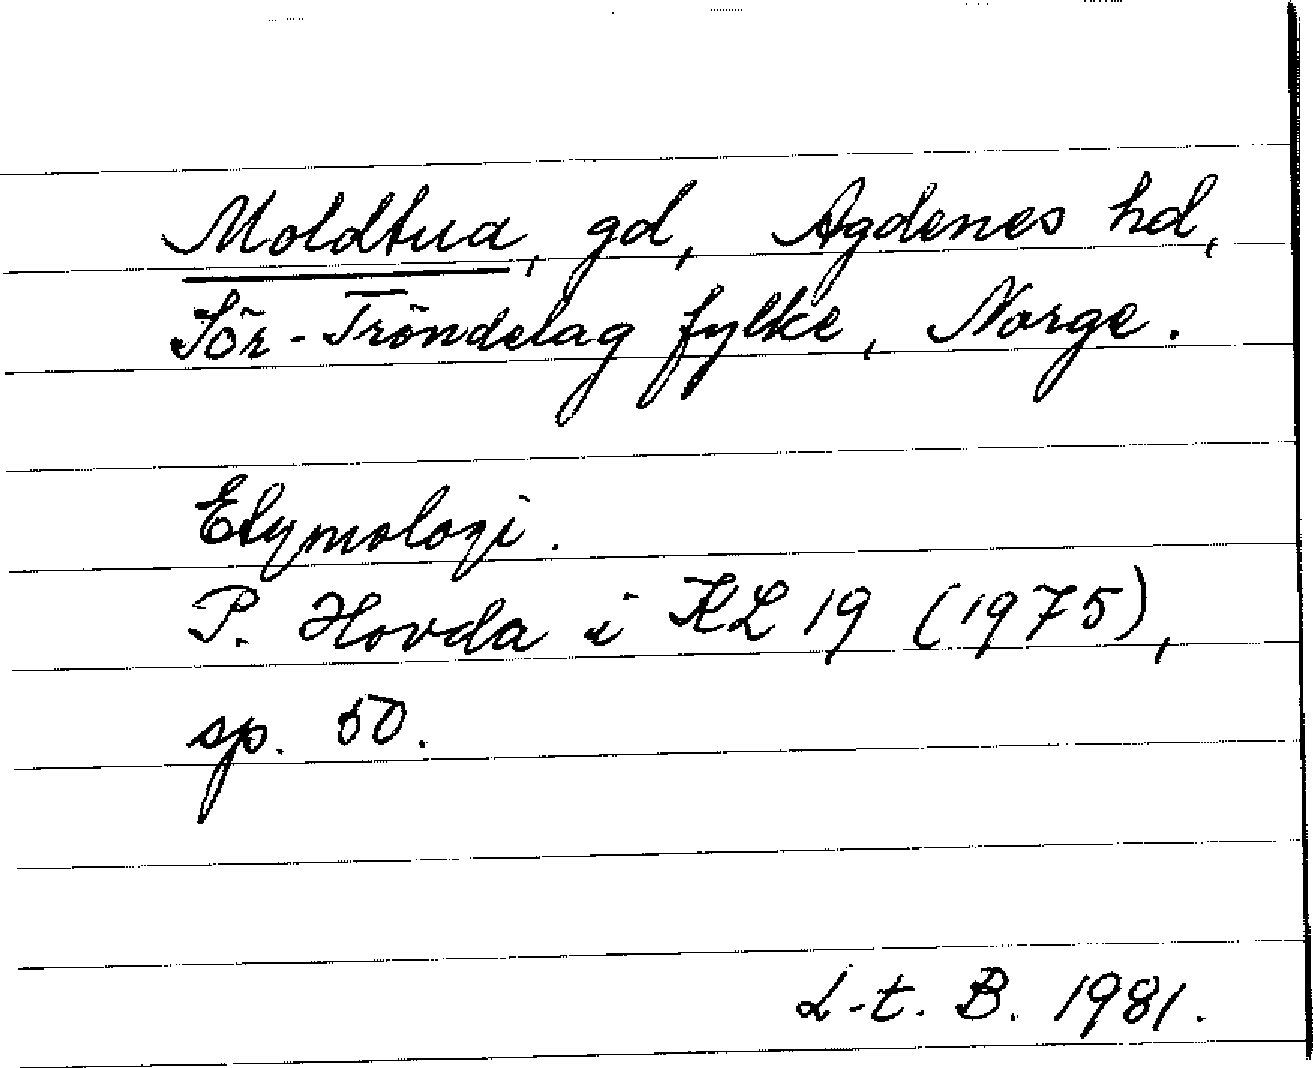 Moldtua, gd, Agdenes hd,
Sör-Tröndelag fylke, Norge.
Etymologi.
P. Hovda i KL 19 (1975),
sp. 50.
L-t. B. 1981.